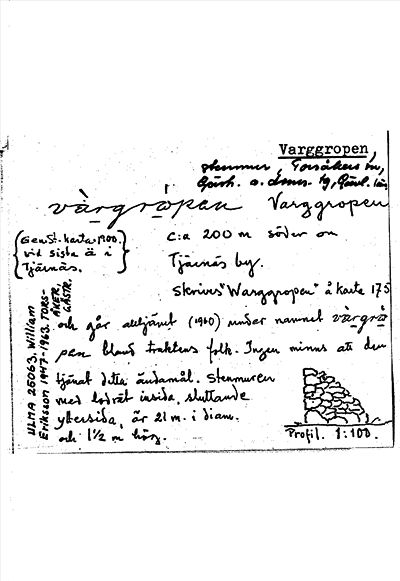 Varggropen,
stenmur Torsåkers sn,
Gästr. o. doms. hg, Gävl. län
vàrgrȯ́pan Varggropen
(Gen.St. karta 1900.
vid sista ä i
Tjärnäs.)
c:a 200 m söder om
Tjärnäs by.
Skrives "Varggropen" å karta
och går alltjämt (1960) under namnet vàrgrå
pen bland traktens folk. Ingen minns att den
tjänat detta ändamål. Stenmuren
med lodrät insida, sluttande
yttersida, är 21 m. i diam.
och 1½ m hög.
Profil. 1:100.
ULMA 25063. William
Eriksson 1947-1963. TORS-
ÅKER, GÄSTR.